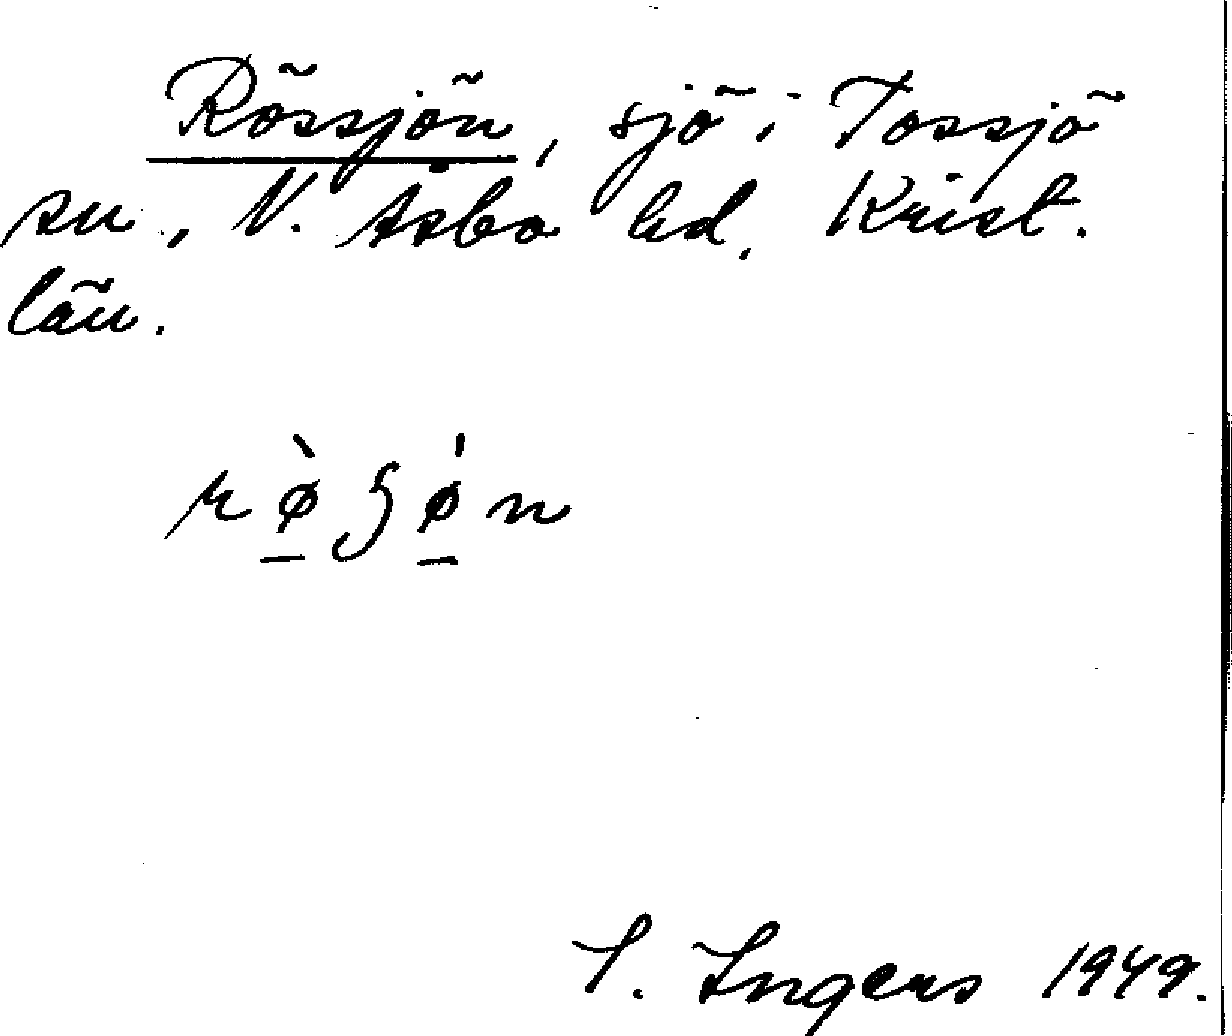 Rössjön, sjö i Tossjö
sn., N. Åsbo hd, Krist.
län.
rø̀ʂǿn
I. Ingers 1949.